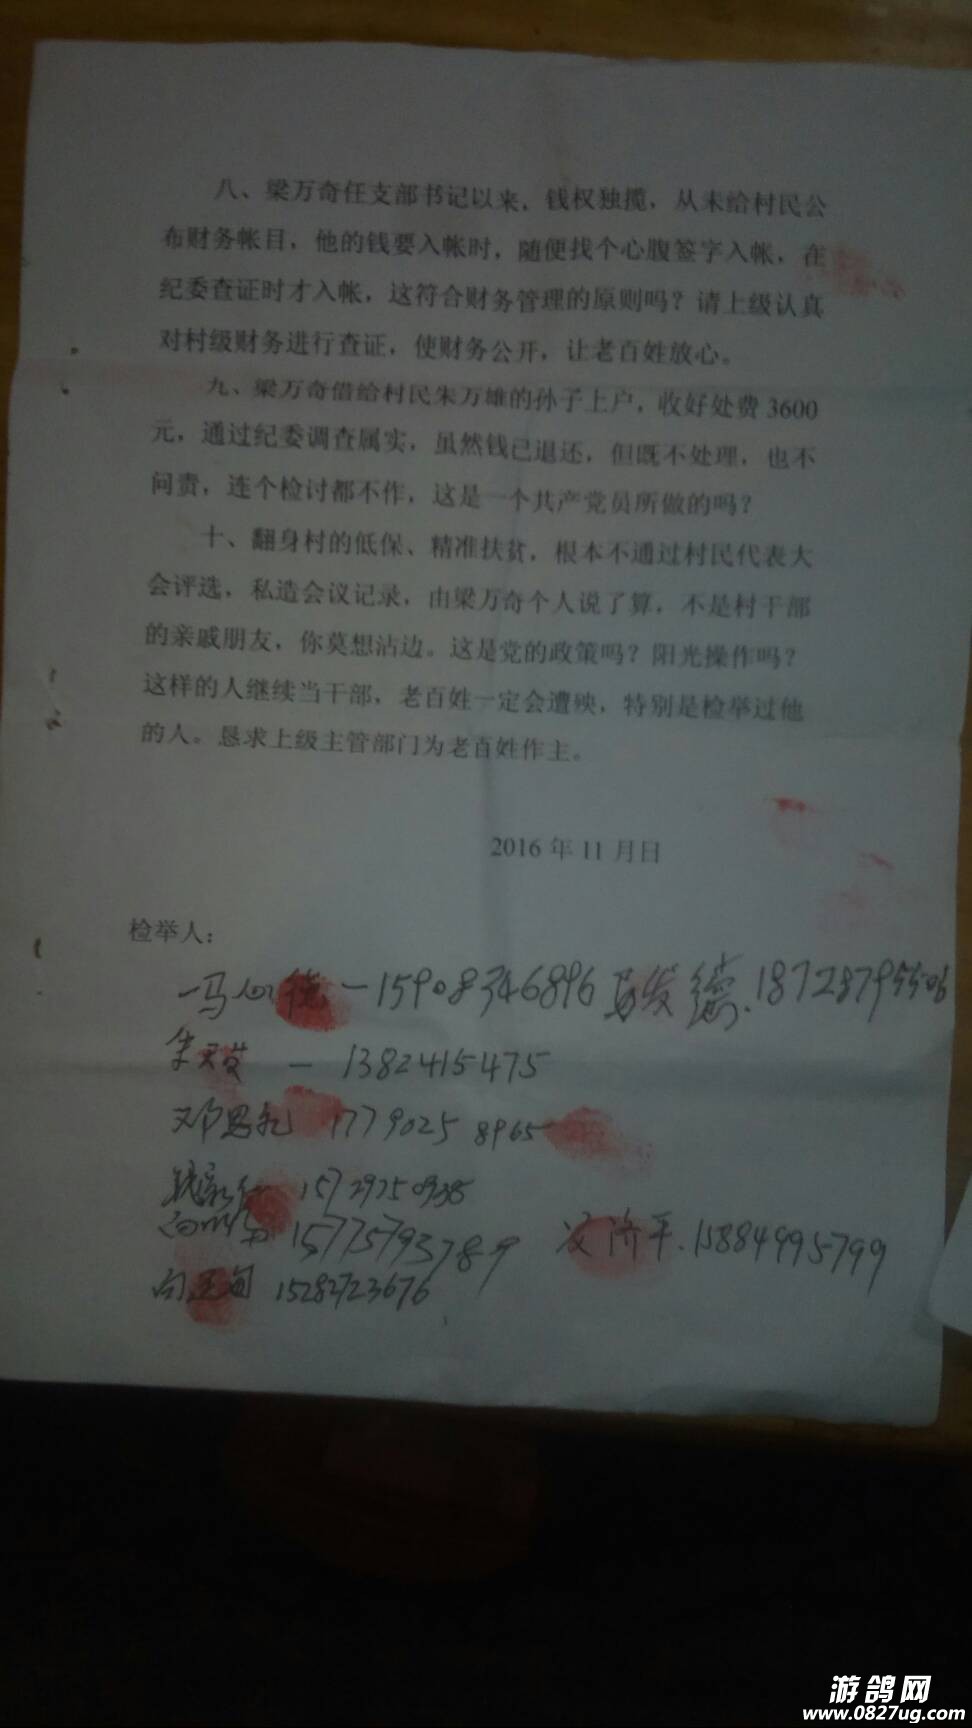 八、梁万奇任支部书记以来，钱权独揽，从未给村民公
布财务帐目，他的钱要入帐时，随便找个心腹签字入帐，在
纪委查证时才入帐，这符合财务管理的原则吗？请上级认真
对村级财务进行查证，使财务公开，让老百姓放心。
九、梁万奇借给村民朱万雄的孙子上户，收好处费3600
元，通过纪委调查属实，虽然钱已退还，但既不处理，也不
问责，连个检讨都不作，这是一个共产党员所做的吗？
十、翻身村的低保、精准扶贫，根本不通过村民代表大
会评选，私造会议记录，由梁万奇个人说了算，不是村干部
的亲戚朋友，你莫想沾边。这是党的政策吗？阳光操作吗？
这样的人继续当干部，老百姓一定会遭殃，特别是检举过他
的人。恳求上级主管部门为老百姓作主。
2016年11月日
检举人：
马 德 15908346896 马发德.
1382415475
邓 17790258965
15729750938
15775793789 济平.15884995799
15282723676
游鸽网
www.0827ug.com